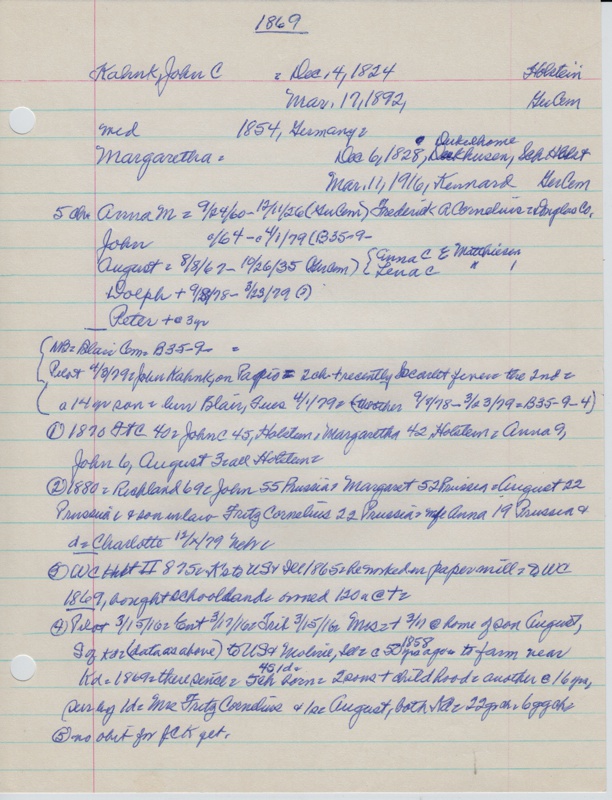 1869
Kahnk, John C = Dec. 4, 1824 Holstein
Mar. 17, 1892, GerCem
md 1854, Germany =
Margaretha = Dec 6, 1828,
Mar. 11, 1916, Kennard GerCem
5 chn Anna M = 9/24/60 - 12/11/26 (GerCem) Frederick A Cornelius = Douglas Co,
John c/64 - 4/1/79 (B35-9-
August = 8/8/67 - 10/26/35 (GerCem) { Anna C E Matthiesen
Lena C " "
Dolph + 9/8/78 - 3/23/79 (?)
Peter + @ 3 yr
NB = Blair Cem = B35-9- =
Pilot 4/3/79 = John Kahnk, on Papio = 2 ch + recently Scarlet fever = the 2nd =
a 14 yr son = bur Blair, Tues 4/1/79 = (another 9/8/78 - 3/23/79 = B35-9-4)
① 1870 40 = John C 45, Holstein, Margaretha 42 Holstein = Anna 9,
John 6, August 3 = all Holstein =
② 1880 = Richland 69 = John 55 Prussia = Margaret 52 Prussia = August 22
Prussia = & son in law Fritz Cornelius 22 Prussia = wfe Anna 19 Prussia &
d = Charlotte 12/79 Nebr =
③ WC Hist II 875 = K to US & Ill 1865 = he worked in paper mill = to WC
1869, bought school land = owned 120 a @ + =
④ Pilot 3/15/16 = Ent 3/17/16 = Trib 3/15/16 = Mrs = + 3/11 @ home of son August,
(data as above) to US & Moline, Ill = c 50 yrs ago = 1858 to farm near
Kd = 1869 = there since = 4s 1d = born = 2 sons + childhood = another @ 16 yrs,
surv by 1d = Mrs Fritz Cornelius & 1s = August, both Nd = 22 gr ch = 6 ggch =
⑤ no obit for JCK yet.